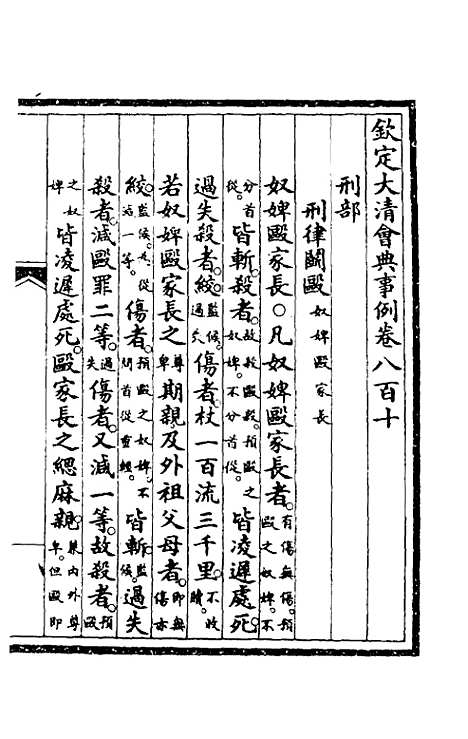 欽定大清會典事例卷八百十
刑部
刑律鬭毆 奴婢毆家長
奴婢毆家長○凡奴婢毆家長者。有傷無傷。預毆之奴婢。不
分首從。皆斬。殺者。故殺毆殺。預毆之奴婢。不分首從。皆凌遲處死。
過失殺者。絞。監候。過失傷者。杖一百流三千里。不收贖。
若奴婢毆家長之尊卑期親。及外祖父母者。即無傷亦
絞。監候。為從減一等。傷者。預毆之奴婢。不問首從重輕。皆斬。監候。過失
殺者。減毆罪二等。過失傷者。又減一等。故殺者。預毆
之奴婢皆凌遲處死。毆家長之緦麻親。兼內外尊卑但毆即